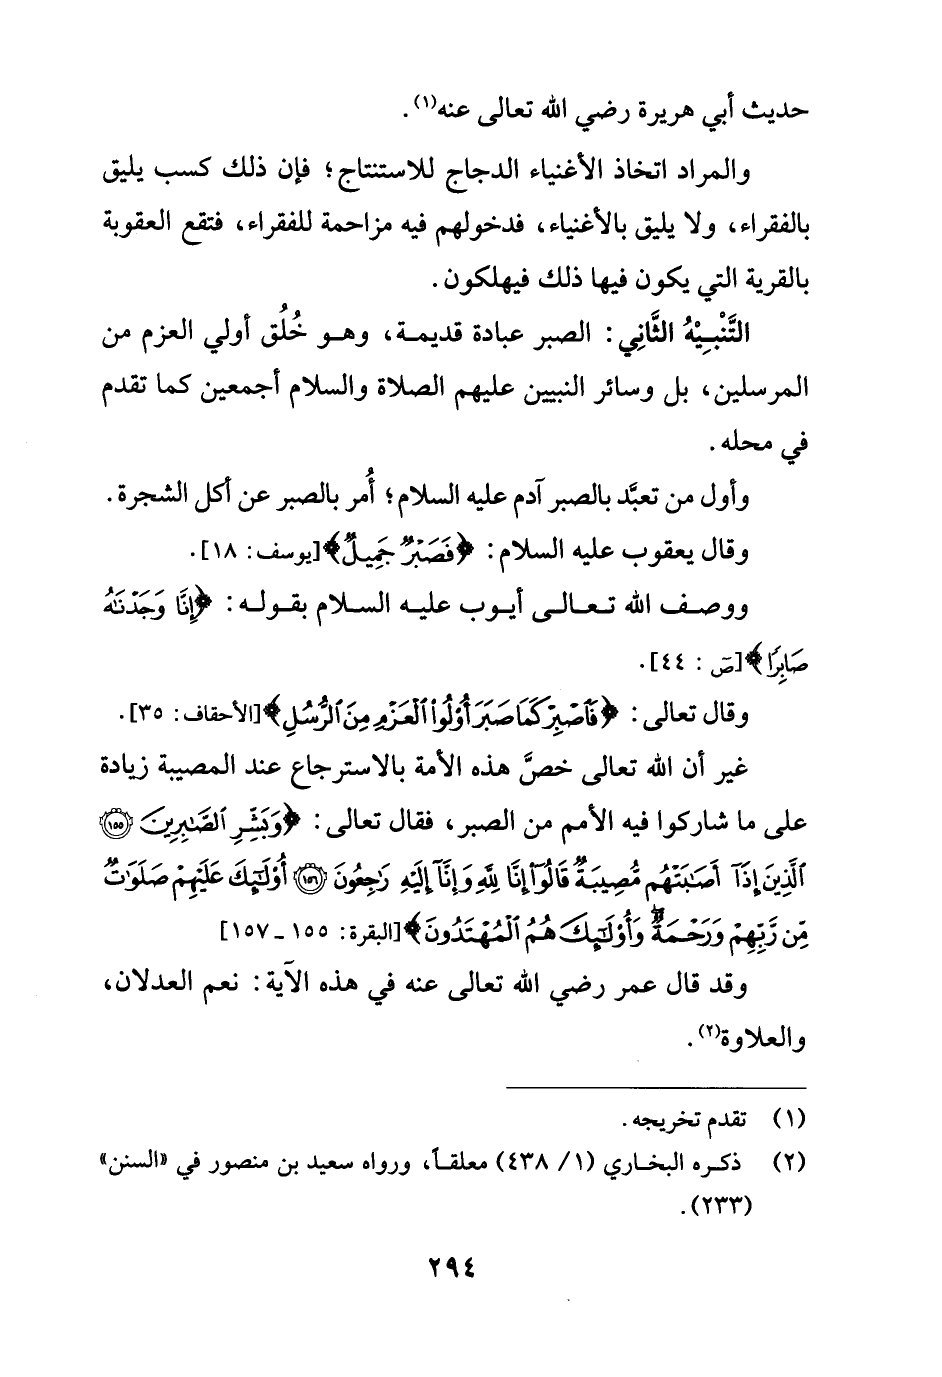 حديث أبي هريرة رضي الله تعالى عنه(١).
والمراد اتخاذ الأغنياء الدجاج للاستنتاج؛ فإن ذلك كسب يليق
بالفقراء، ولا يليق بالأغنياء، فدخولهم فيه مزاحمة للفقراء، فتقع العقوبة
بالقرية التي يكون فيها ذلك فيهلكون.
التَّنْبِيْهُ الثَّانِي: الصبر عبادة قديمة، وهو خُلُق أولي العزم من
المرسلين، بل وسائر النبيين عليهم الصلاة والسلام أجمعين كما تقدم
في محله.
وأول من تعبَّد بالصبر آدم عليه السلام؛ أُمر بالصبر عن أكل الشجرة.
وقال يعقوب عليه السلام: ﴿فَصَبْرٌ جَمِيلٌ﴾[يوسف: ١٨].
ووصف الله تعالى أيوب عليه السلام بقوله: ﴿إِنَّا وَجَدْنَٰهُ
صَابِرًا﴾[صَ: ٤٤].
وقال تعالى: ﴿فَٱصْبِرْ كَمَا صَبَرَ أُو۟لُوا۟ ٱلْعَزْمِ مِنَ ٱلرُّسُلِ﴾[الأحقاف: ٣٥].
غير أن الله تعالى خصَّ هذه الأمة بالاسترجاع عند المصيبة زيادة
على ما شاركوا فيه الأمم من الصبر، فقال تعالى: ﴿وَبَشِّرِ ٱلصَّٰبِرِينَ ١٥٥
ٱلَّذِينَ إِذَآ أَصَٰبَتْهُم مُّصِيبَةٌ قَالُوٓا۟ إِنَّا لِلَّهِ وَإِنَّآ إِلَيْهِ رَٰجِعُونَ ١٥٦ أُو۟لَٰٓئِكَ عَلَيْهِمْ صَلَوَٰتٌ
مِّن رَّبِّهِمْ وَرَحْمَةٌ ۖ وَأُو۟لَٰٓئِكَ هُمُ ٱلْمُهْتَدُونَ﴾[البقرة: ١٥٥ ـ ١٥٧]
وقد قال عمر رضي الله تعالى عنه في هذه الآية: نعم العدلان،
والعلاوة(٢).
(١) تقدم تخريجه.
(٢) ذكره البخاري (١/ ٤٣٨) معلقاً، ورواه سعيد بن منصور في «السنن»
(٢٣٣).
٢٩٤